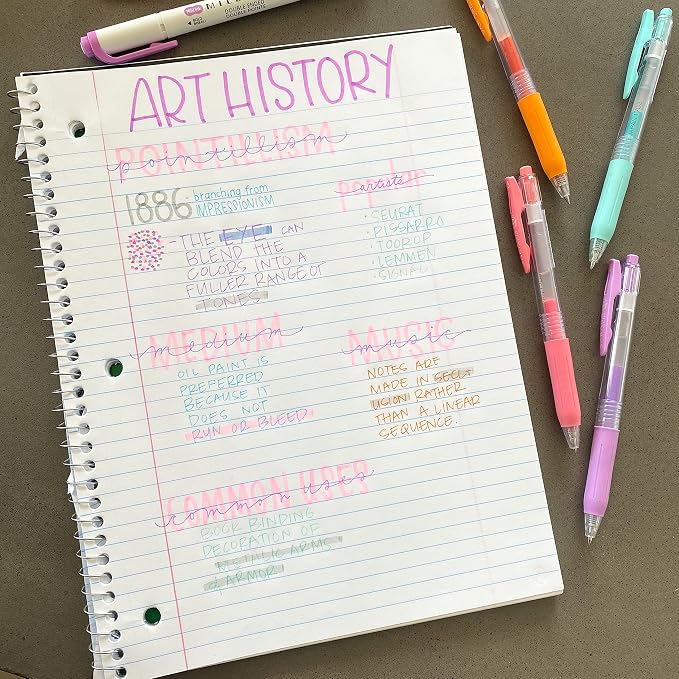 MILDLINER
DOUBLE ENDED
ART HISTORY
POINTILLISM
pointillism
1886 branching from
IMPRESSIONISM
popular
artists
- THE EYE CAN
BLEND THE
COLORS INTO A
FULLER RANGE OF
TONES
· SEURAT
· PISSARRO
· TOOROP
· LEMMEN
· SIGNAC
MEDIUM
medium
OIL PAINT IS
PREFERRED
BECAUSE IT
DOES NOT
RUN OR BLEED
MUSIC
music
NOTES ARE
MADE IN SECL-
USION RATHER
THAN A LINEAR
SEQUENCE.
COMMON USES
common uses
BOOK BINDING
DECORATION OF
METALLIC ARMS
& ARMOR